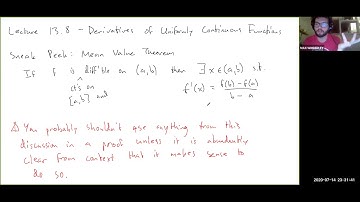 Lecture 13.8 - Derivatives of Uniformly Continuous Functions
Sneak Peek: Mean Value Theorem
If f is diff'ble on (a,b) then ∃ x ∈ (a,b) s.t.
cts on [a,b] and
f'(x) = (f(b) - f(a)) / (b - a)
⚠ You probably shouldn't use anything from this
discussion in a proof unless it is abundantly
clear from context that it makes sense to
do so.
2020-07-14 23:31:41